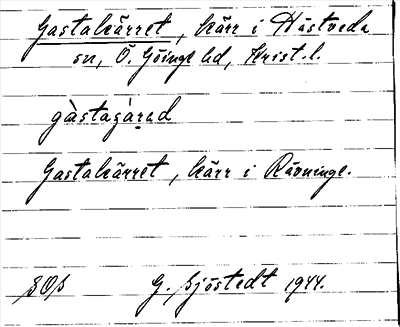 Gastakärret, kärr i Hästveda
sn, Ö. Göinge hd, Krist. l.
gàstagàrad
Gastakärret, kärr i Rävninge.
G. Sjöstedt 1944.